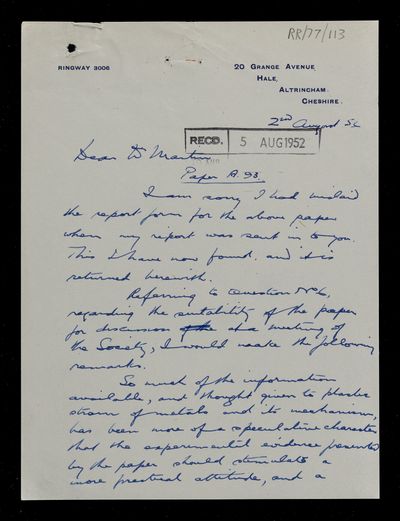 RR/77/113
RINGWAY 3006
20 GRANGE AVENUE,
HALE,
ALTRINCHAM.
CHESHIRE.
2nd August 52
RECD. 5 AUG 1952
Dear Dr Martin
Paper A.93.
I am sorry I had mislaid
the report form for the above paper
when my report was sent in to you.
This I have now found, and it is
returned herewith.
Referring to Question No 6,
regarding the suitability of the paper
for discussion at a meeting of
the Society, I would make the following
remarks.
So much of the information
available, and thought given to plastic
strain of metals and its mechanism,
has been more of a speculative character
that the experimental evidence presented
by the paper should stimulate a
more practical attitude, and a